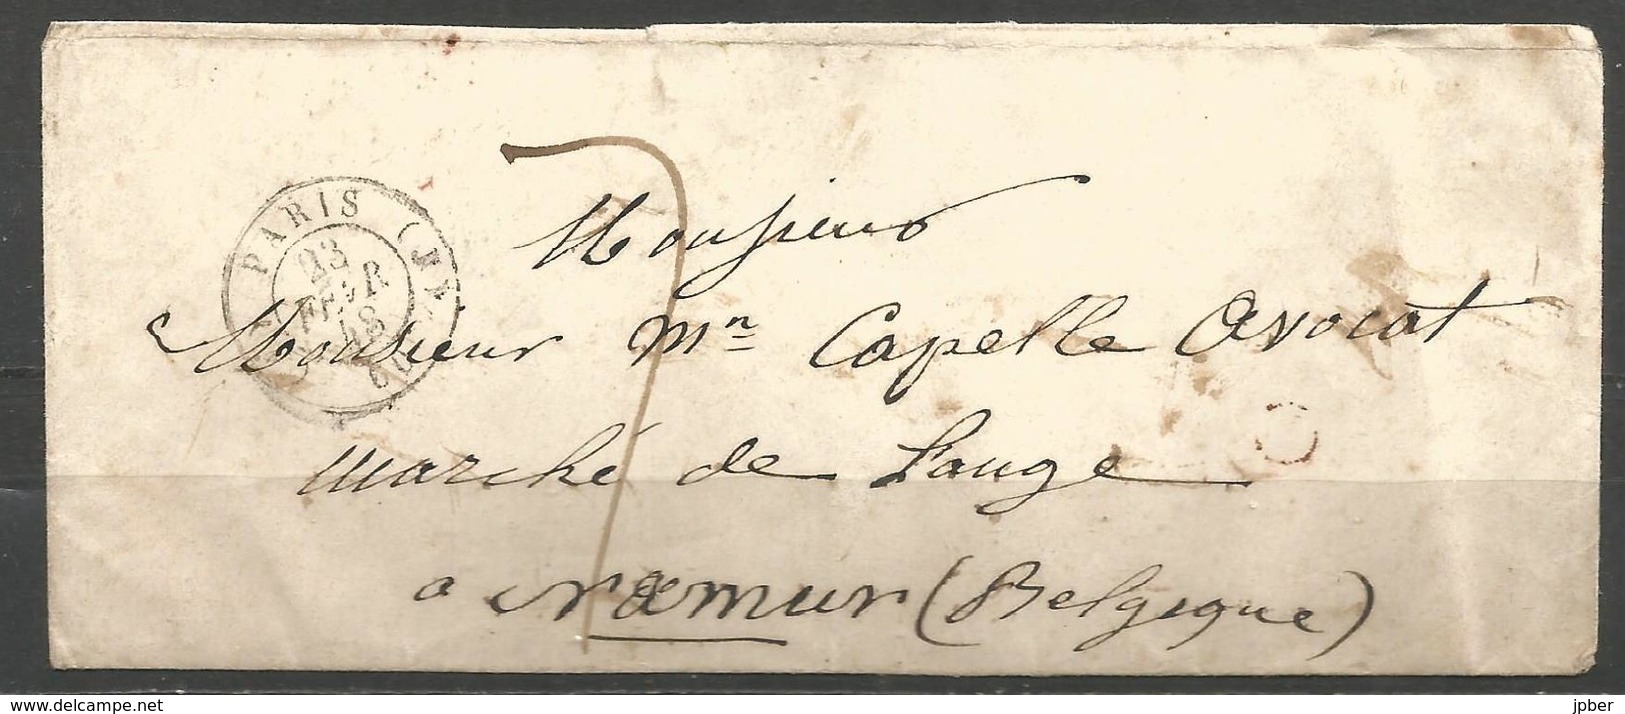 PARIS
23
FEVR
58
60
Monsieur
Monsieur Mn Capelle avocat
Marché de Lange
a Namur (Belgique)
7
delcampe.net
jpber